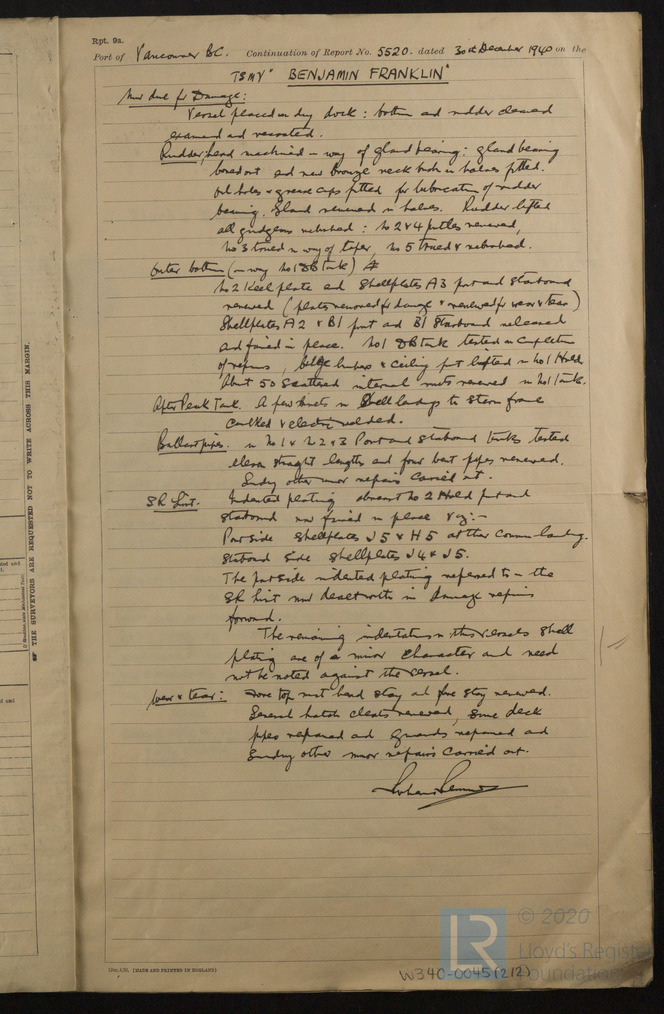 Rpt. 9a.
Port of Vancouver BC. Continuation of Report No. 5520 - dated 30th December 1940 on the
TSMV "BENJAMIN FRANKLIN"
Now due for Damage:
Vessel placed in dry dock: bottom and rudder cleaned
examined and recoated.
Rudder; head machined in way of gland bearing: gland bearing
bored out and new bronze neck bush in halves fitted.
oil holes & grease cups fitted for lubrication of rudder
bearing. Gland renewed in halves. Rudder lifted
all gudgeons rebushed: No 2 & 4 pintles renewed,
No 3 trued in way of taper, No 5 trued & rebushed.
Outer bottom (in way No 1 DB tank)
No 2 Keel plate and Shellplates A3 port and starboard
renewed (plates removed for damage & renewed for wear & tear)
Shellplates A2 & B1 port and B1 starboard released
and faired in place. No 1 DB tank tested on completion
of repairs, bilge limbers & ceiling part lifted in No 1 Hold
About 50 scattered internal rivets renewed in No 1 tank.
After Peak Tank. A few rivets in Shell landings to stern frame
caulked & electric welded.
Ballast pipes. in No 1 & No 2 & 3 Port and starboard tanks tested
eleven straight lengths and four bent pipes renewed.
Sundry other minor repairs carried out.
SR List. Indented plating abreast No 2 Hold port and
starboard now faired in place viz:-
Port side Shellplates J5 & H5 at their common landing.
Starboard Side Shellplates J4 & J5.
The port side indented plating referred to in the
SR list now dealt with in damage repairs
forward.
The remaining indentations in this vessels Shell
plating are of a minor character and need
not be noted against the vessel.
Wear & tear: Fore top mast head stay and fore stay renewed.
Several hatch cleats renewed, some deck
pipes repaired and guards repaired and
sundry other minor repairs carried out.
OF THE SURVEYORS ARE REQUESTED NOT TO WRITE ACROSS THIS MARGIN.
(MADE AND PRINTED IN ENGLAND)
W340-0045 (2/2)
LR
© 2020
Lloyd's Register
Foundation